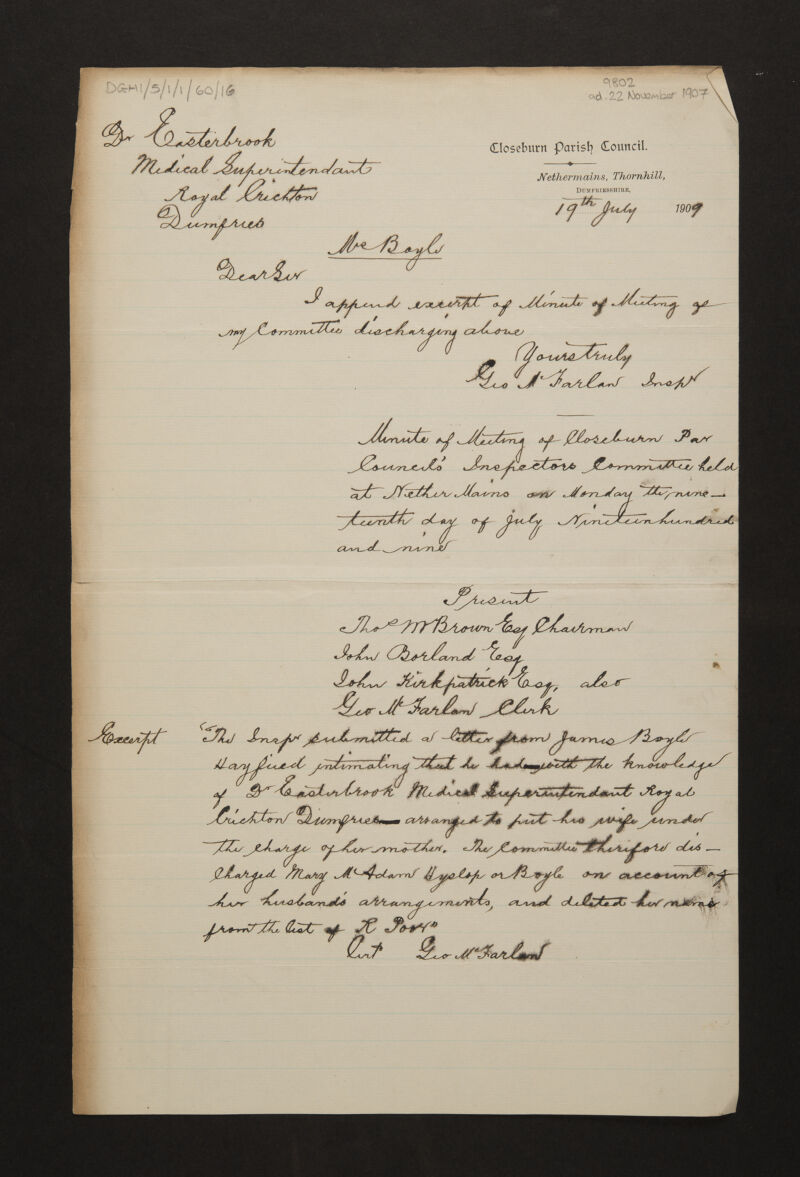 DGH1/5/1/1/60/16
9802
ad. 22 November 1907
Dr Easterbrook
Medical Superintendant
Royal Crichton
Dumfries
Closeburn Parish Council.
Nethermains, Thornhill,
DUMFRIESSHIRE,
19th July 1909
Mrs Boyle
Dear Sir
I append excerpt of Minute of Meeting of
my Committee discharging above
Yours truly
Geo McFarlan Inspr
Minute of Meeting of Closeburn Par
Council's Inspectors Committee held
at Nether Mains on Monday the nine-
teenth day of July Nineteen hundred
and nine
Present
Thos W Brown Esq Chairman
John Borland Esq
John Kirkpatrick Esq, also
Geo McFarlan Clerk
Excerpt "The Inspr submitted a letter from James Boyle
Hayfield intimating that he had with the knowledge
of Dr Easterbrook Medical Superintendant Royal
Crichton Dumfries arranged to put his wife under
the charge of her mother. The Committee therefore dis-
charged Mary McAdam Hyslop or Boyle on account of
her husband's arrangements, and deleted her name
from the list of R Poor"
Cert Geo McFarlan